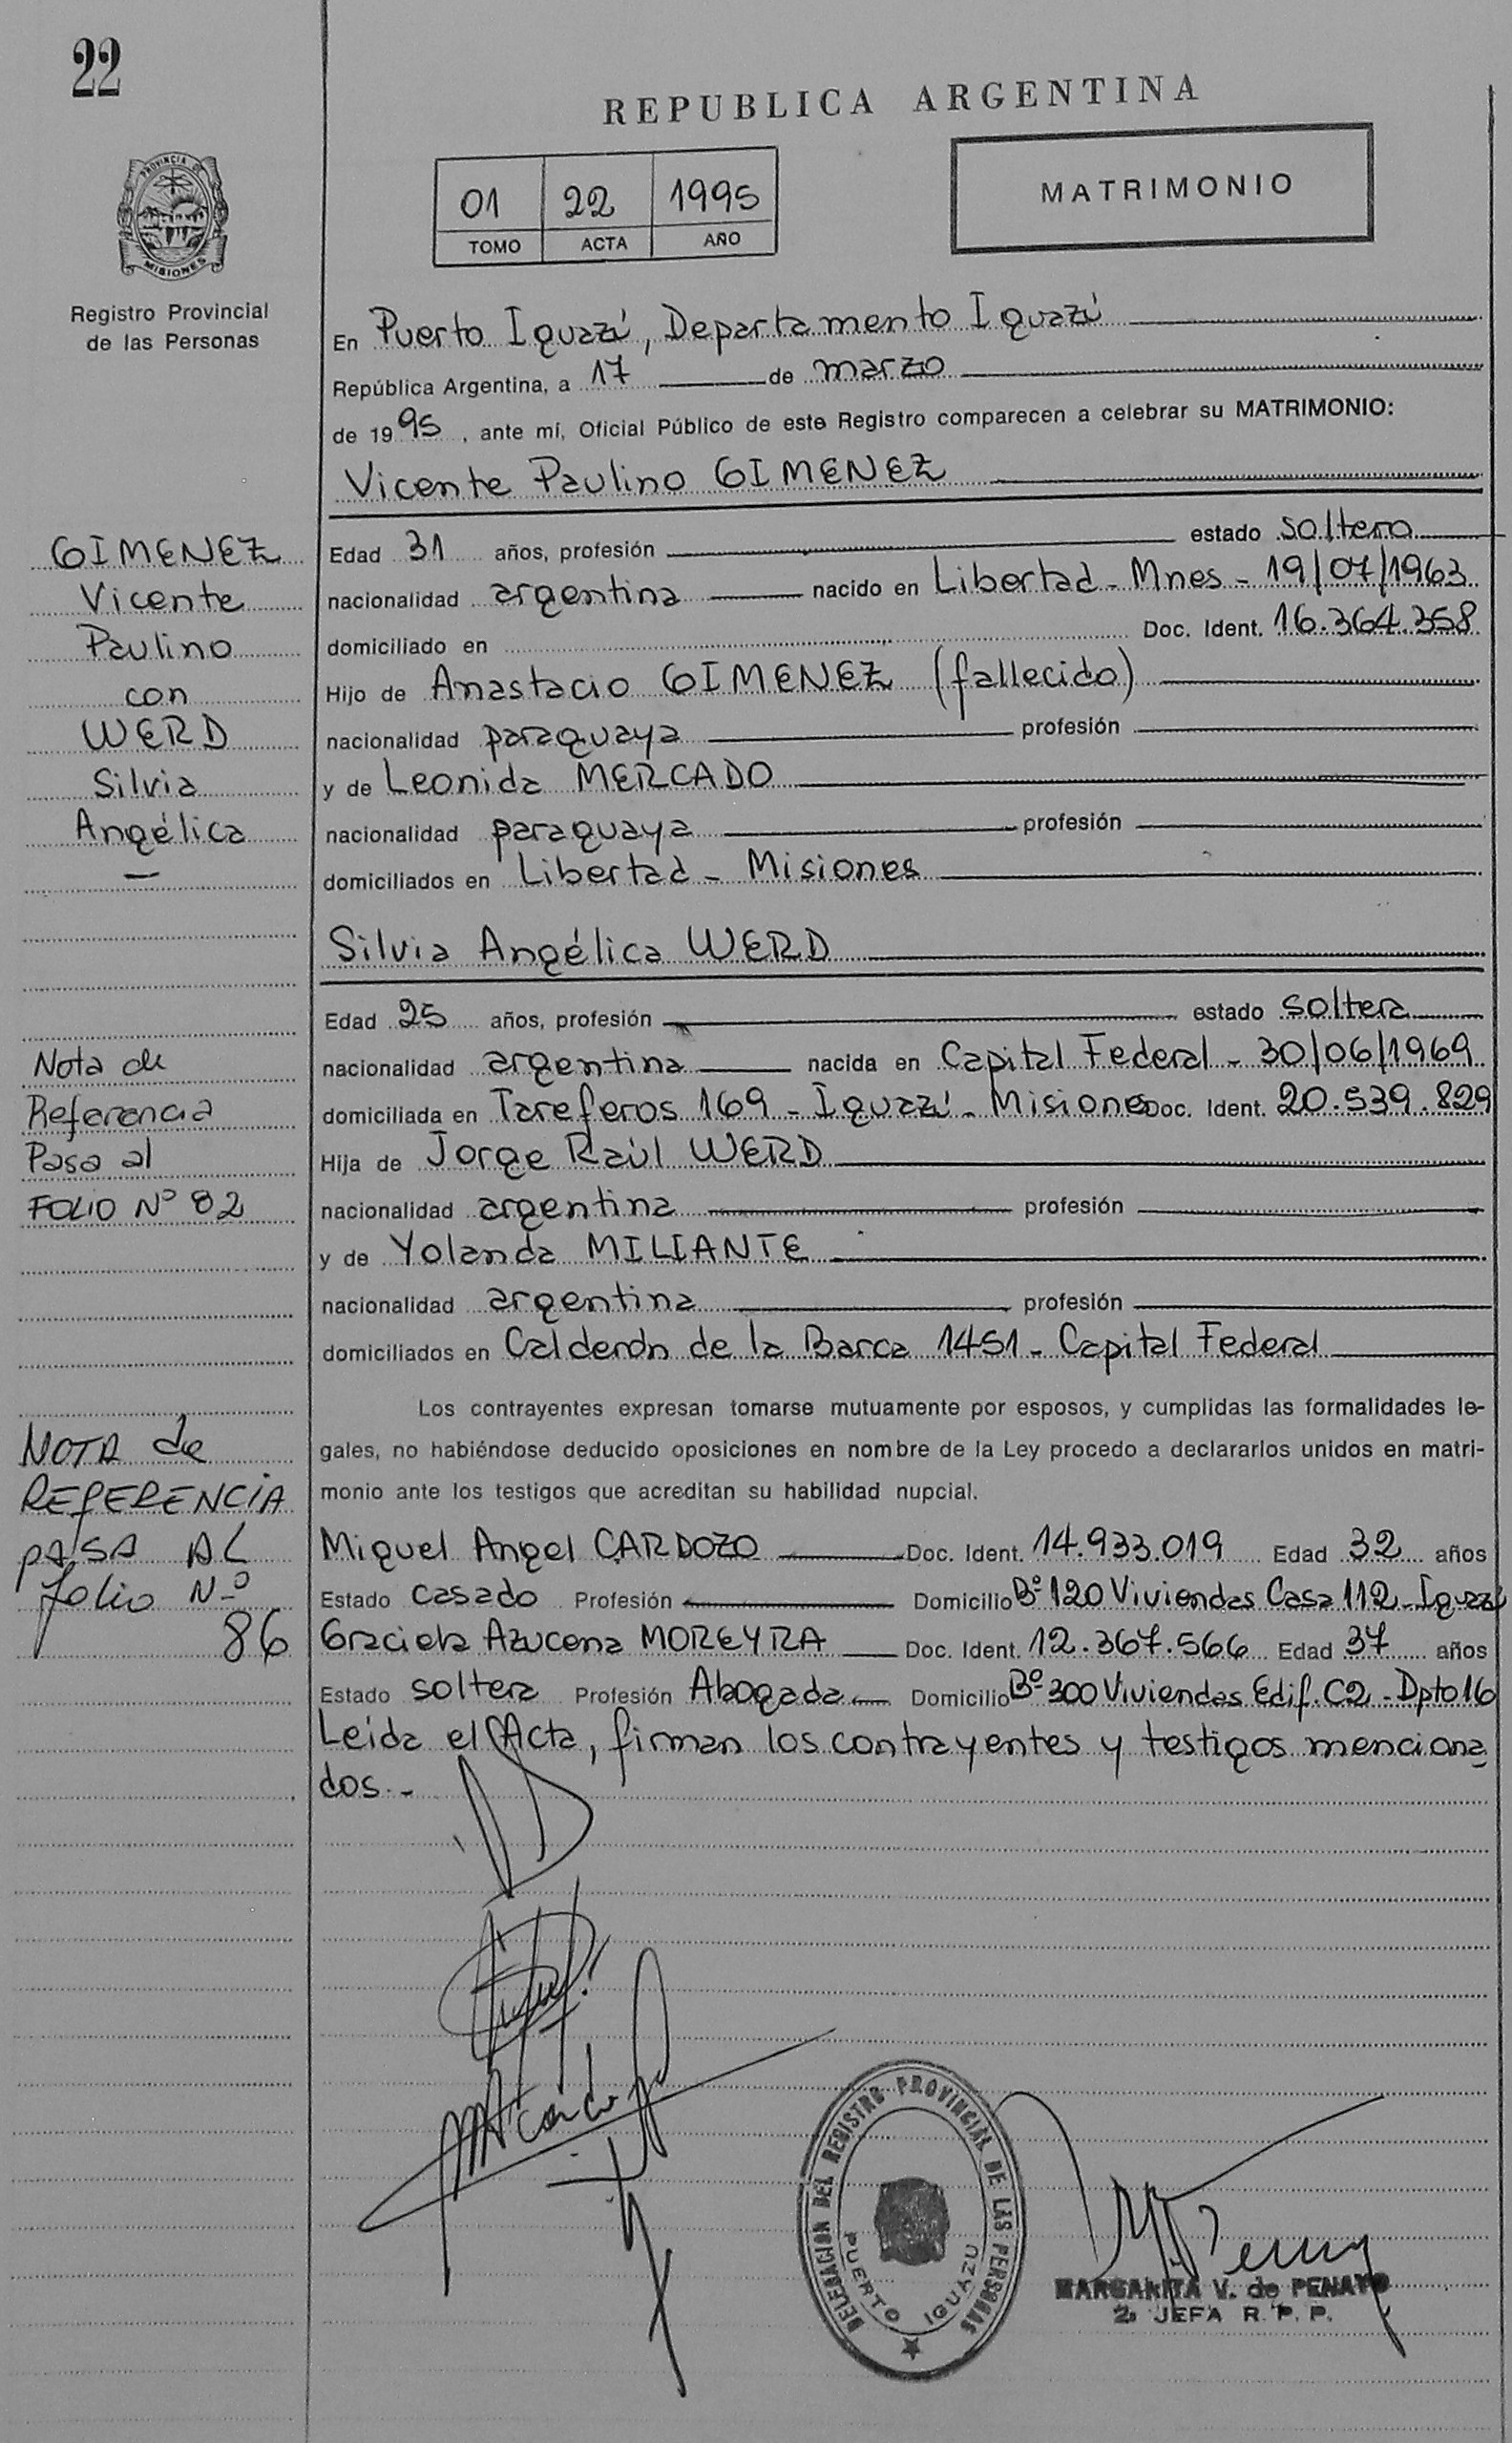 22
REPUBLICA ARGENTINA
PROVINCIA DE
MISIONES
Registro Provincial
de las Personas
01 22 1995
TOMO ACTA AÑO
MATRIMONIO
En Puerto Iguazú, Departamento Iguazú
República Argentina, a 17 de marzo
de 1995, ante mí, Oficial Público de este Registro comparecen a celebrar su MATRIMONIO:
Vicente Paulino GIMENEZ
Edad 31 años, profesión estado soltero
nacionalidad argentina nacido en Libertad - Mnes - 19/07/1963
domiciliado en Doc. Ident. 16.364.358
Hijo de Anastacio GIMENEZ (fallecido)
nacionalidad paraguaya profesión
y de Leonida MERCADO
nacionalidad paraguaya profesión
domiciliados en Libertad - Misiones
Silvia Angélica WERD
Edad 25 años, profesión estado soltera
nacionalidad argentina nacida en Capital Federal - 30/06/1969
domiciliada en Tareferos 169 - Iguazú - Misiones Doc. Ident. 20.539.829
Hija de Jorge Raúl WERD
nacionalidad argentina profesión
y de Yolanda MILIANTE
nacionalidad argentina profesión
domiciliados en Calderón de la Barca 1451 - Capital Federal
Los contrayentes expresan tomarse mutuamente por esposos, y cumplidas las formalidades le-
gales, no habiéndose deducido oposiciones en nombre de la Ley procedo a declararlos unidos en matri-
monio ante los testigos que acreditan su habilidad nupcial.
Miguel Angel CARDOZO Doc. Ident. 14.933.019 Edad 32 años
Estado casado Profesión Domicilio Bº 120 Viviendas Casa 112 - Iguazú
Graciela Azucena MOREYRA Doc. Ident. 12.367.566 Edad 37 años
Estado soltera Profesión Abogada Domicilio Bº 300 Viviendas Edif. C2 - Dpto 16
Leída el Acta, firman los contrayentes y testigos menciona
dos.-
GIMENEZ
Vicente
Paulino
con
WERD
Silvia
Angélica
—
Nota de
Referencia
Pasa al
FOLIO Nº 82
NOTA de
REFERENCIA
PASA AL
folio Nº
86
DELEGACION DEL REGISTRO PROVINCIAL DE LAS PERSONAS
PUERTO IGUAZU
MARGARITA V. de PENAYO
2ª JEFA R. P. P.